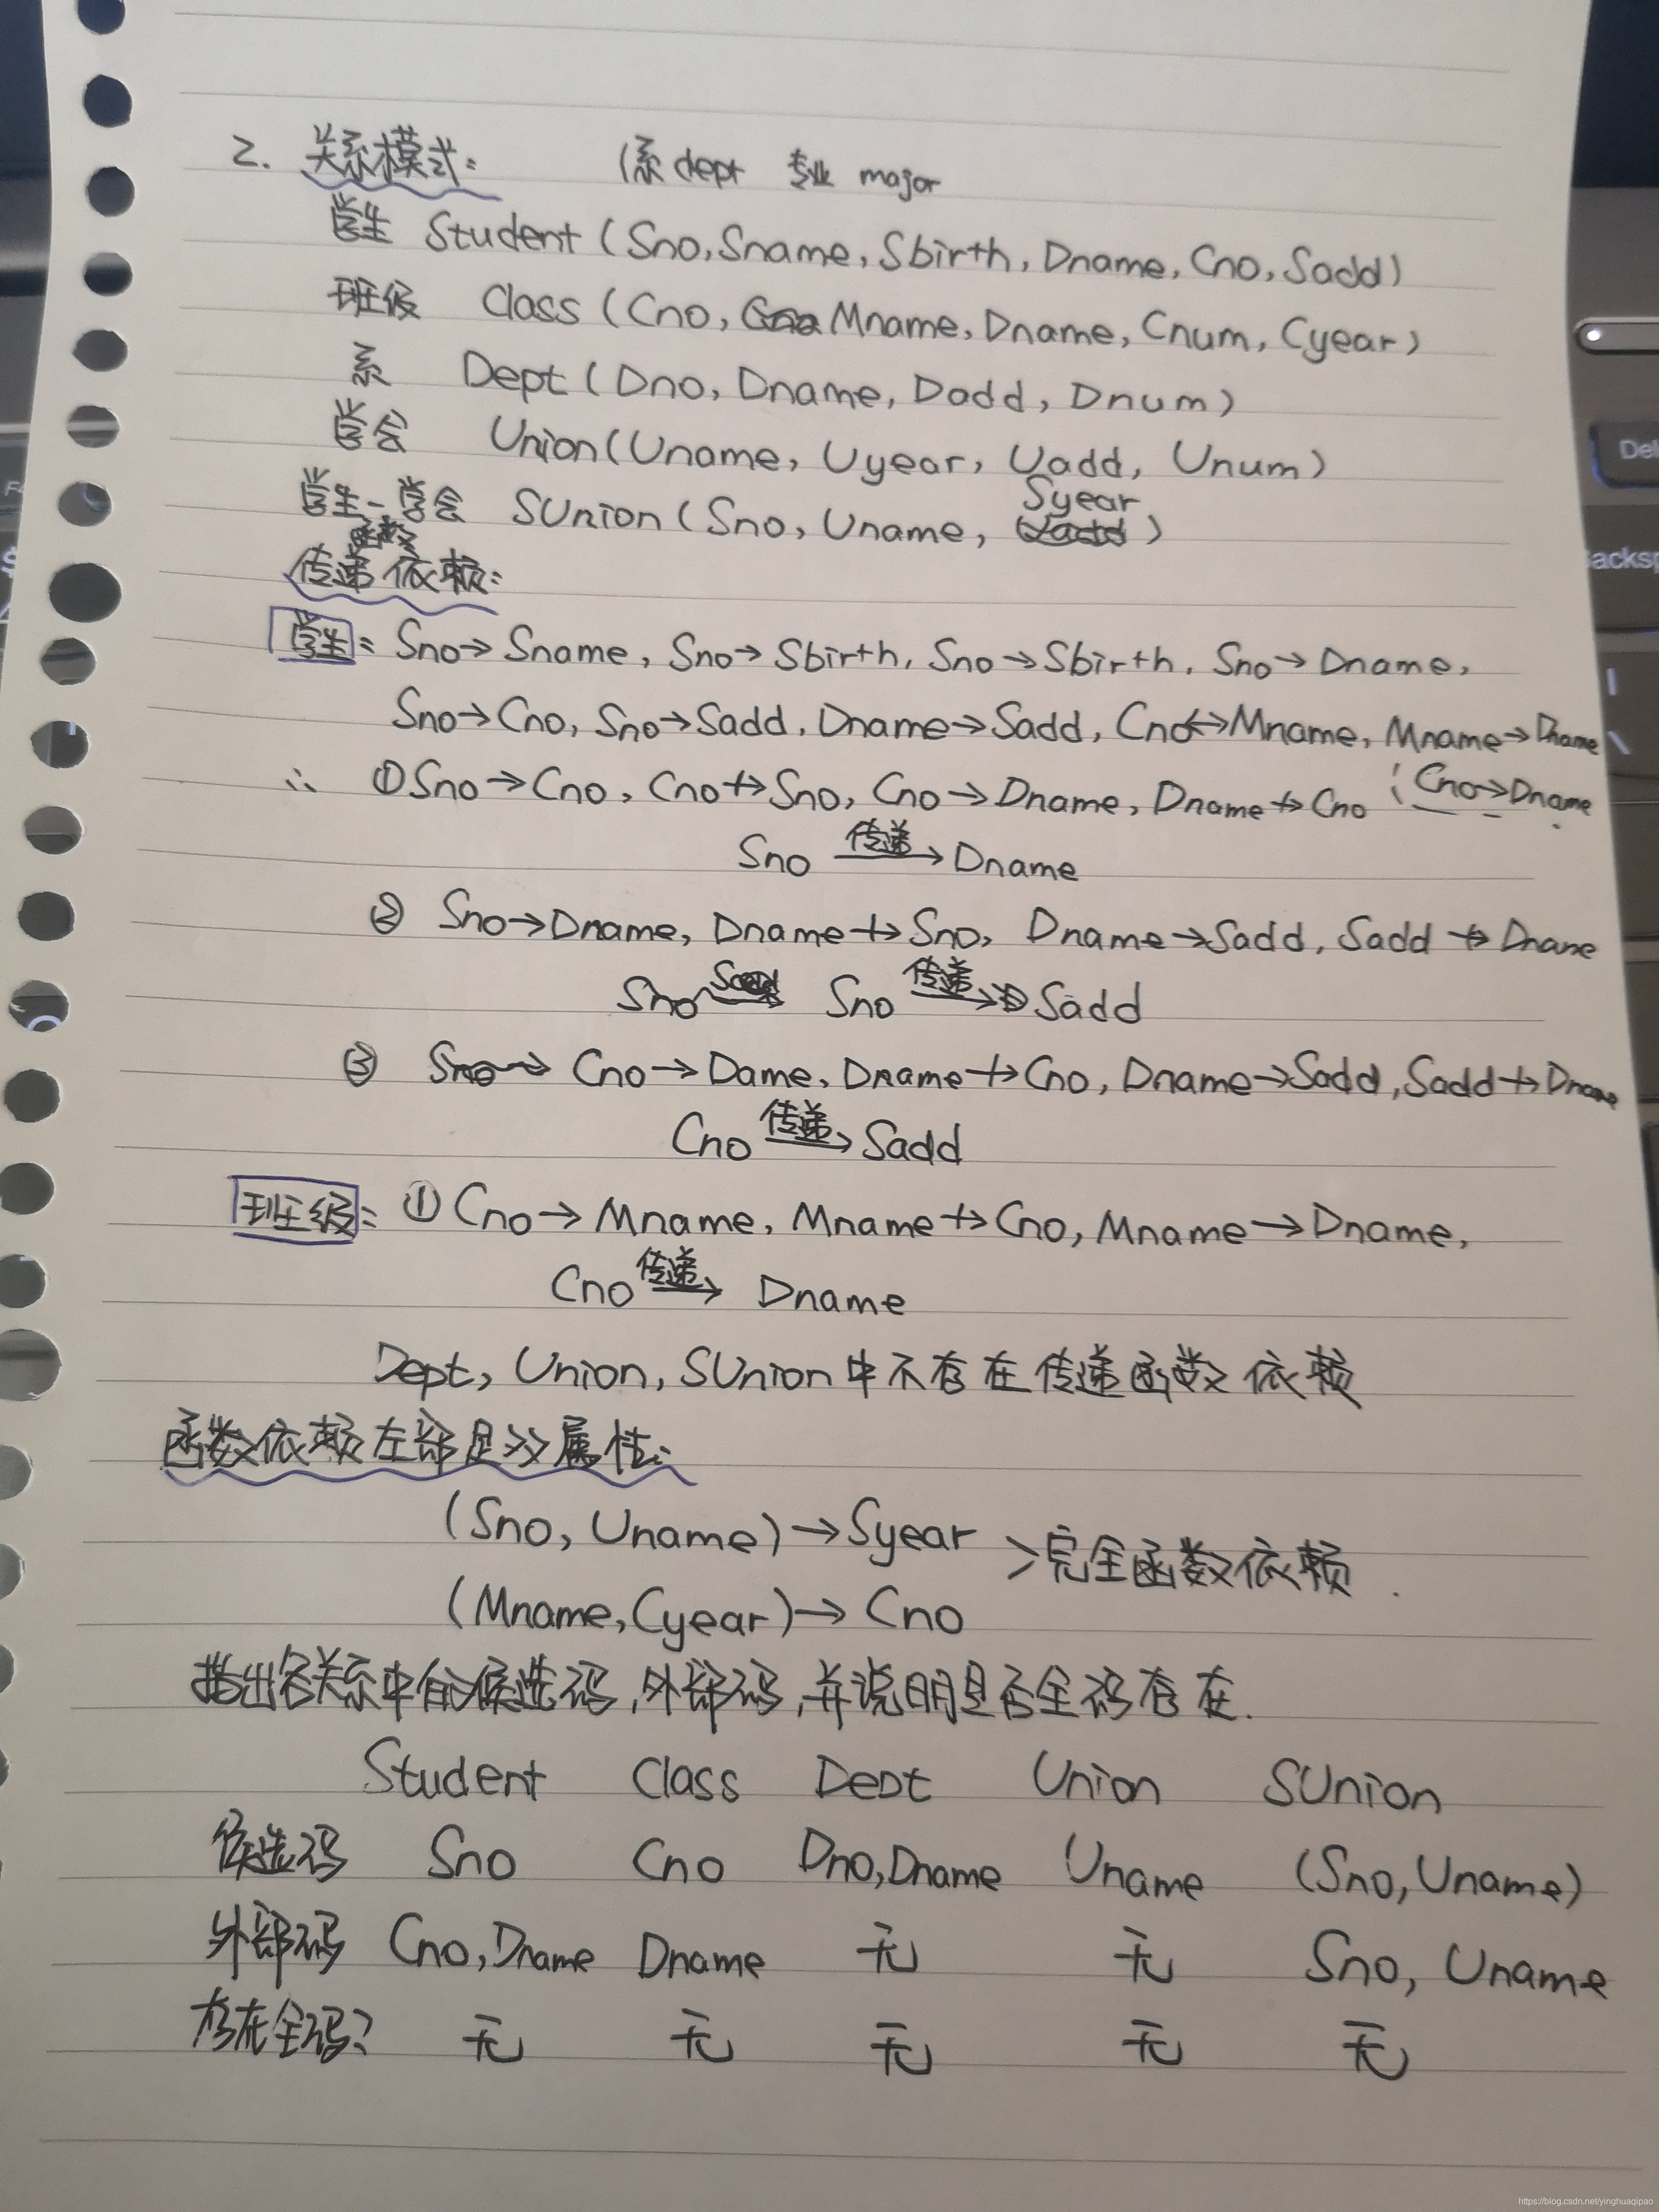 2. 关系模式: (系dept 专业 major
学生 Student (Sno, Sname, Sbirth, Dname, Cno, Sadd)
班级 Class (Cno, Mname, Dname, Cnum, Cyear)
系 Dept (Dno, Dname, Dadd, Dnum)
学会 Union (Uname, Uyear, Uadd, Unum)
学生-学会 SUnion (Sno, Uname, Syear)
传递函数依赖:
学生: Sno→Sname, Sno→Sbirth, Sno→Sbirth, Sno→Dname,
Sno→Cno, Sno→Sadd, Dname→Sadd, Cno↔Mname, Mname→Dname
(Cno→Dname
∴ ①Sno→Cno, Cno↛Sno, Cno→Dname, Dname↛Cno
Sno 传递→ Dname
② Sno→Dname, Dname↛Sno, Dname→Sadd, Sadd↛Dname
Sno 传递→ Sadd
③ Cno→Dame, Dname↛Cno, Dname→Sadd, Sadd↛Dname
Cno 传递→ Sadd
班级: ①Cno→Mname, Mname↛Cno, Mname→Dname,
Cno 传递→ Dname
Dept, Union, SUnion中不存在传递函数依赖
函数依赖左部是双属性:
(Sno, Uname)→Syear
>完全函数依赖.
(Mname, Cyear)→Cno
指出各关系中的候选码,外部码,并说明是否全码存在.
Student Class Dept Union SUnion
候选码 Sno Cno Dno,Dname Uname (Sno, Uname)
外部码 Cno,Dname Dname 无 无 Sno, Uname
存在全码? 无 无 无 无 无
Del
Backsp
https://blog.csdn.net/yinghuaqipao